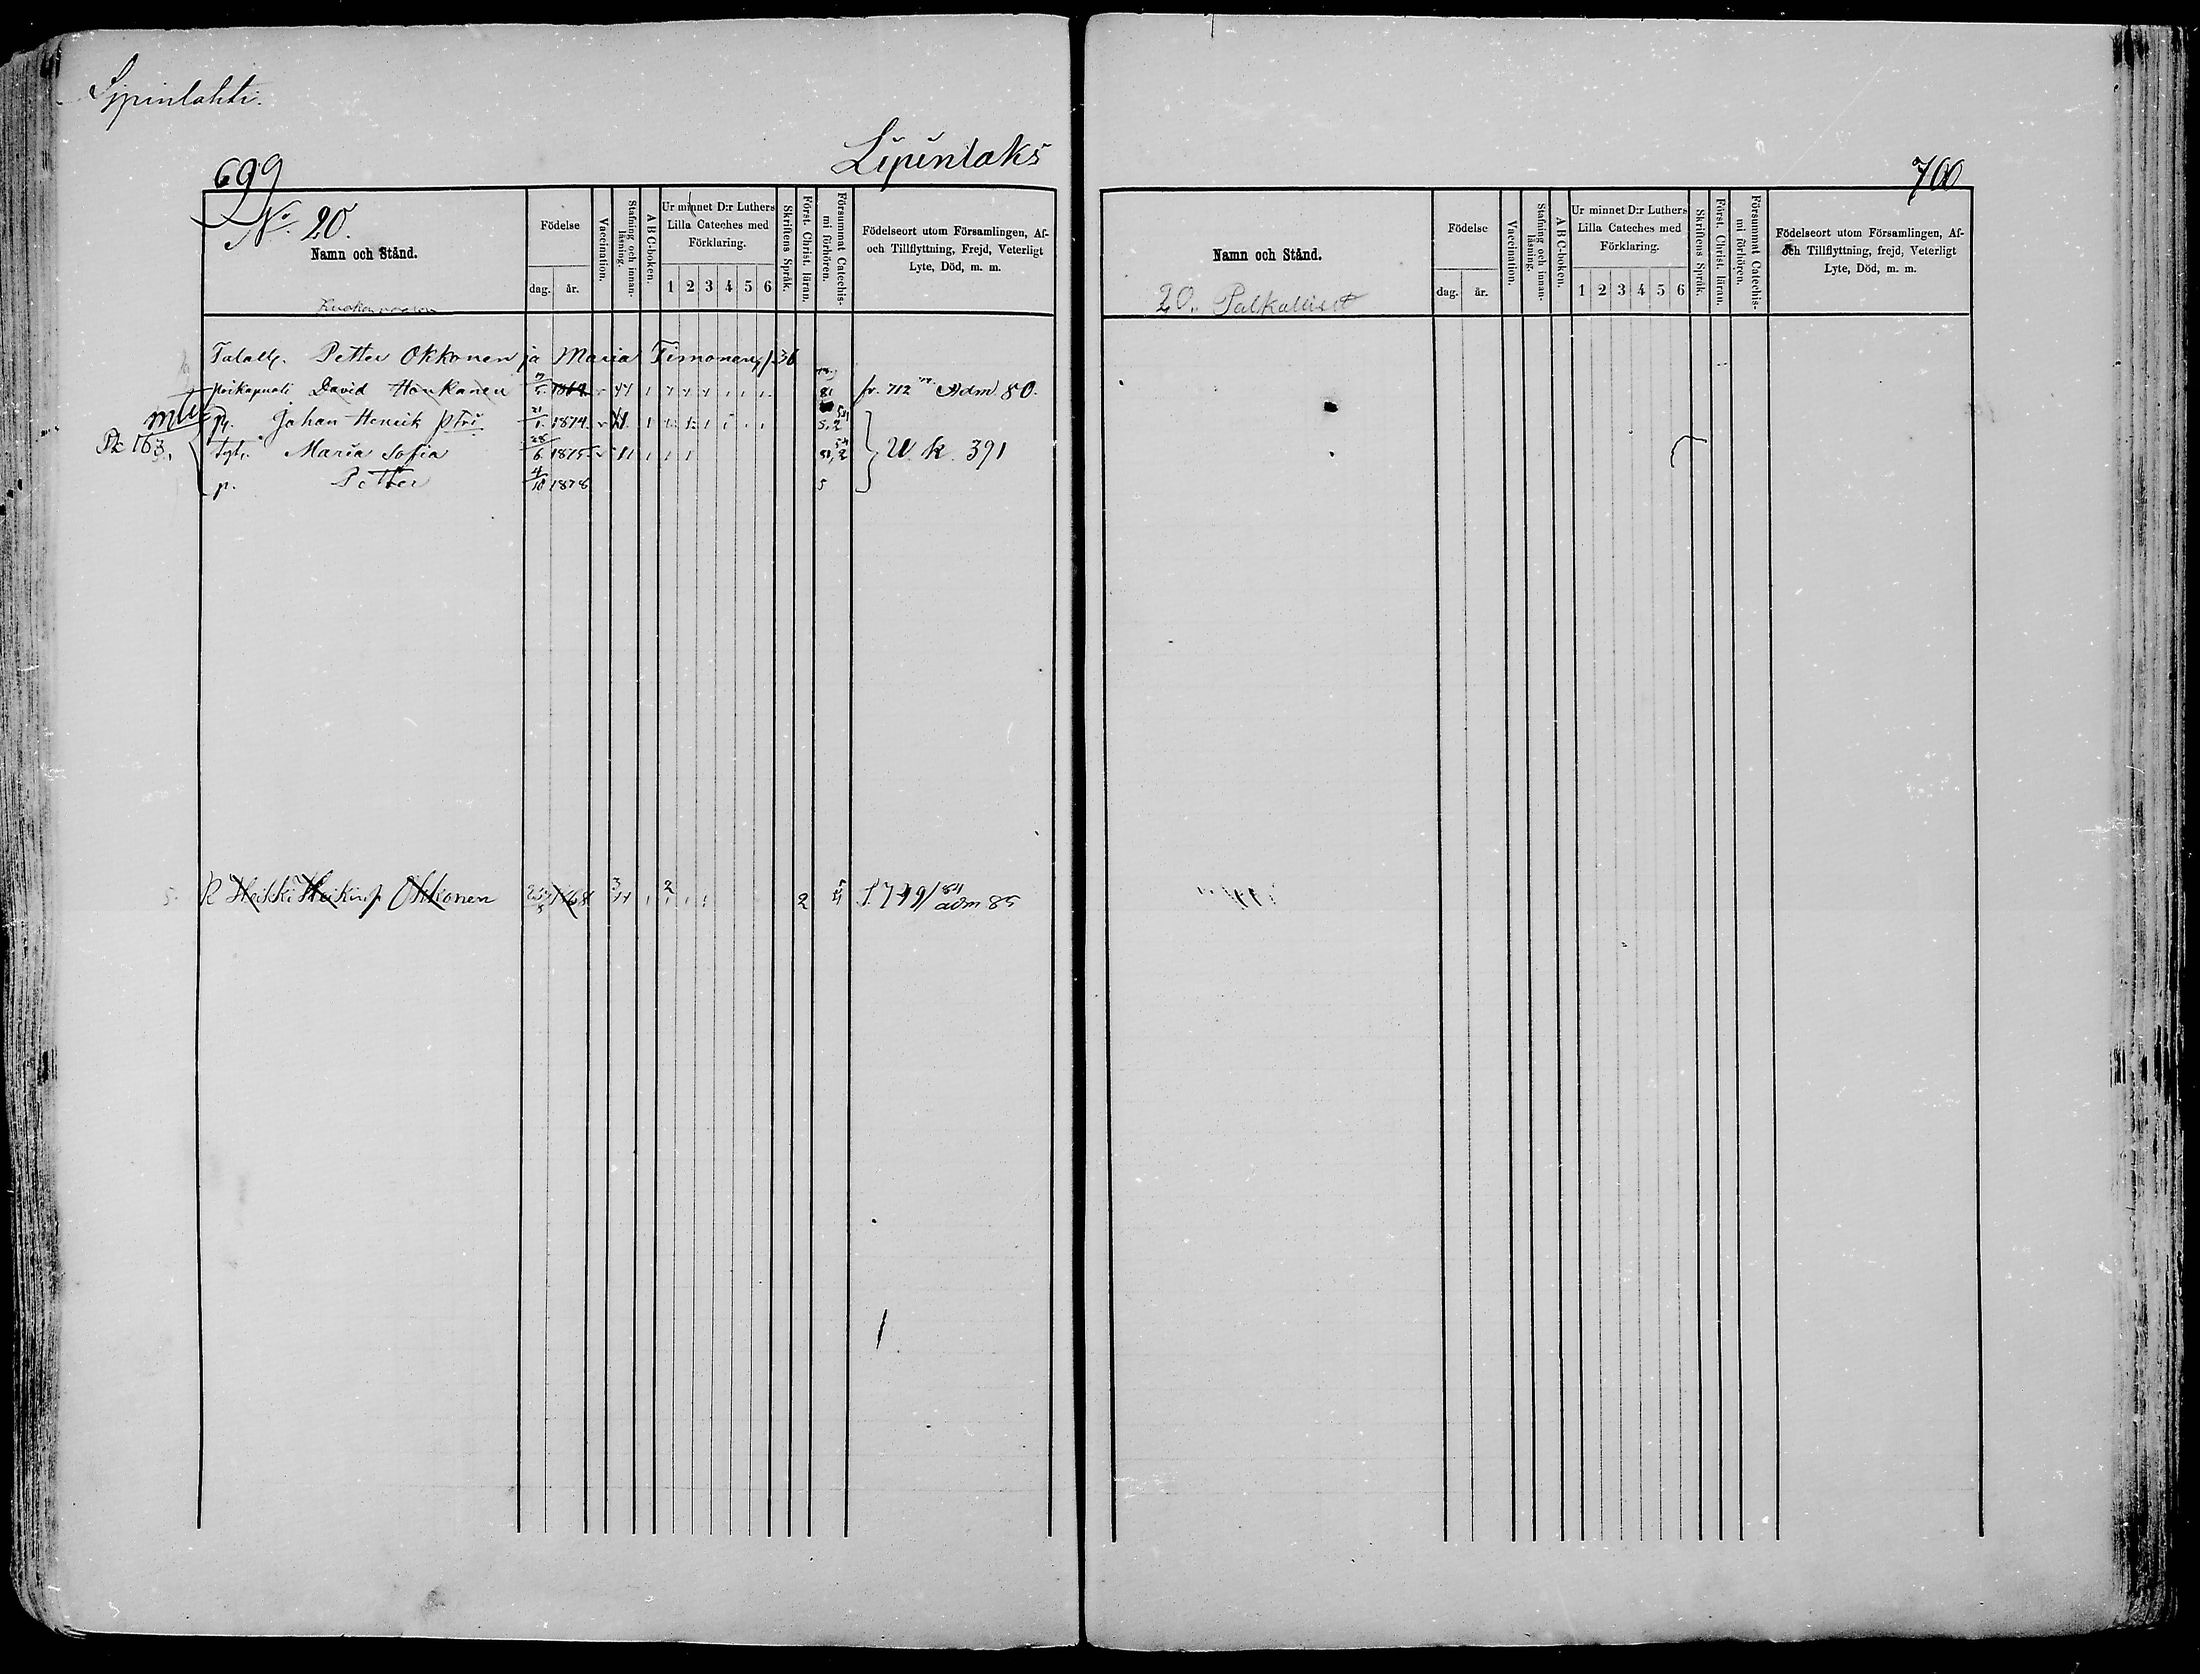 Sipinlahti.
699
Lipinlaks
No. 20.
Namn och Stånd.
Födelse
dag. år.
Vaccination.
Stafning och innanläsning.
A B C-boken.
Ur minnet D:r Luthers
Lilla Cateches med
Förklaring.
1 2 3 4 5 6
Skriftens Språk.
Först. Christ. läran.
Försummat Catechis-
mi förhören.
Födelseort utom Församlingen, Af-
och Tillflyttning, Frejd, Veterligt
Lyte, Död, m. m.
Petter Okkonen ja Maria Timonen 36
David Honkanen 1862 81 fr. 712 Adm 80.
p. Johan Henrik ptri 21/1 1874
163 tyt. Maria Sofia 28/6 1875 U. k. 391
p. Petter 4/10 1878 5
R Heikki Heikinp Okkonen 68 2 S. 719/84 adm 85
700
Namn och Stånd.
20. Palkalliset
Födelse
dag. år.
Vaccination.
Stafning och innanläsning.
A B C-boken.
Ur minnet D:r Luthers
Lilla Cateches med
Förklaring.
1 2 3 4 5 6
Skriftens Språk.
Först. Christ. läran.
Försummat Catechis-
mi förhören.
Födelseort utom Församlingen, Af-
och Tillflyttning, frejd, Veterligt
Lyte, Död, m. m.